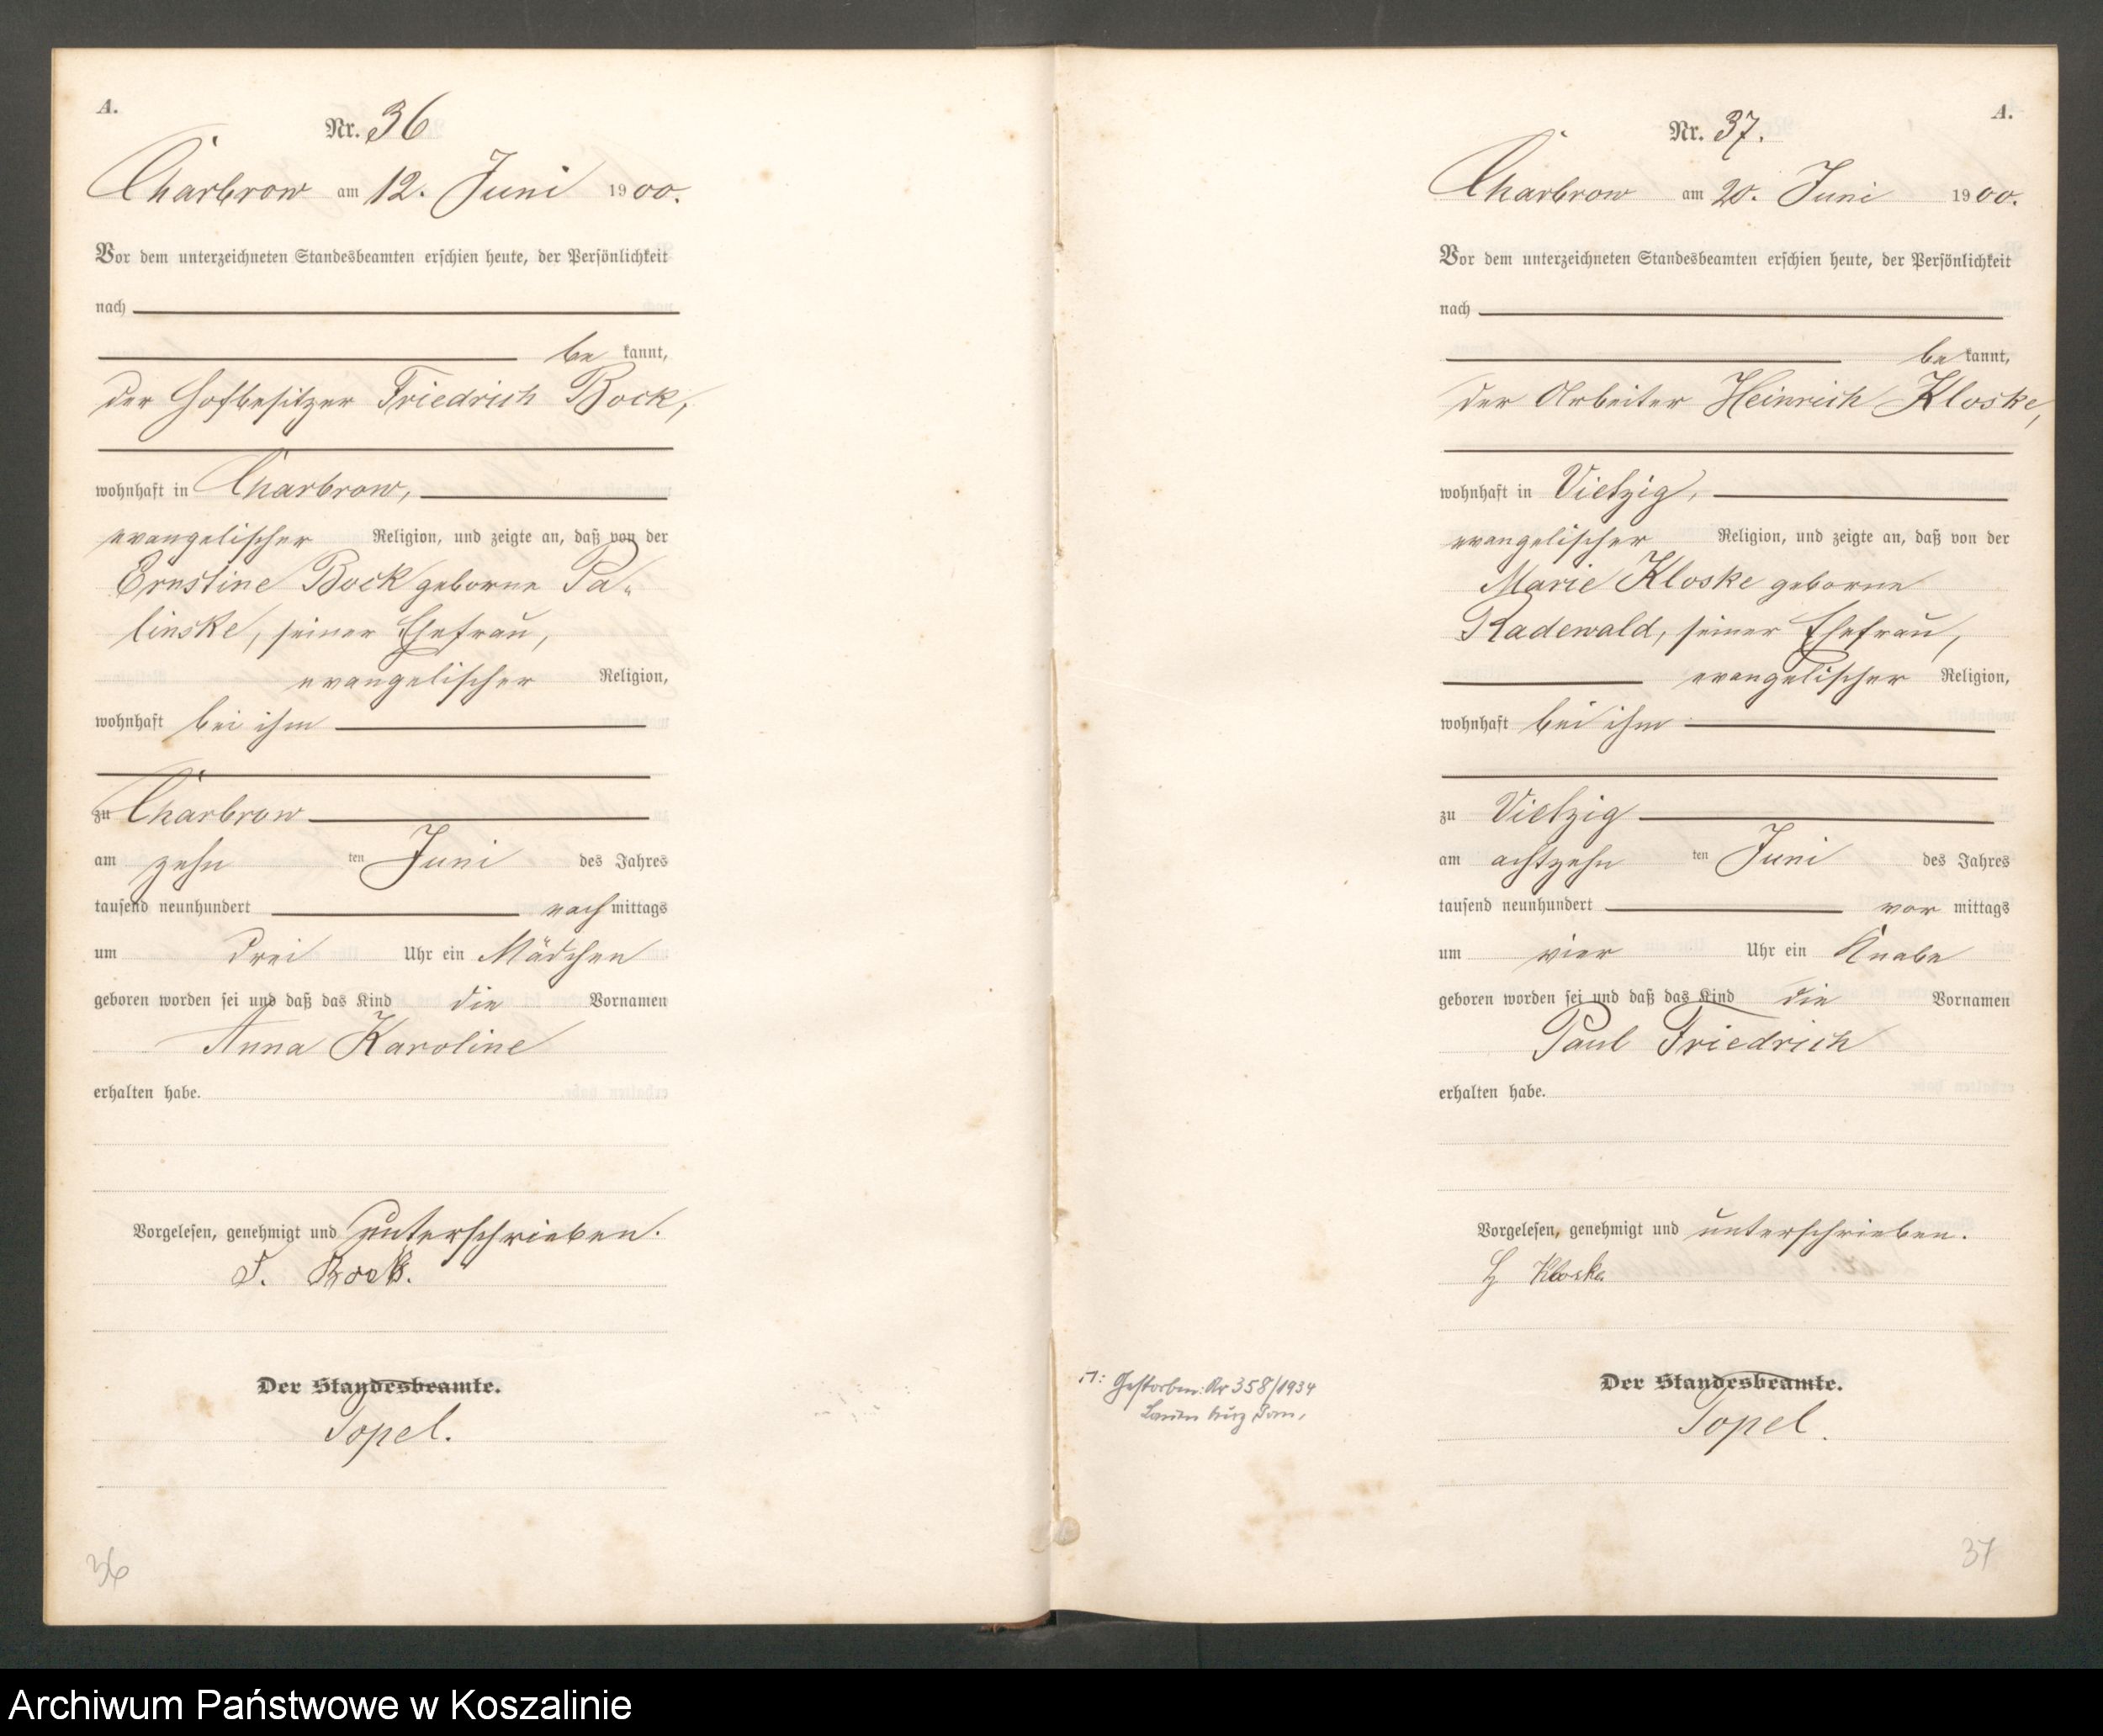 A.
Nr. 36
Charbrow am 12. Juni 1900.
Vor dem unterzeichneten Standesbeamten erschien heute, der Persönlichkeit
nach
be kannt,
der Hofbesitzer Friedrich Bock,
wohnhaft in Charbrow,
evangelischer Religion, und zeigte an, daß von der
Ernstine Bock geborne Pa-
linske, seiner Ehefrau,
evangelischer Religion,
wohnhaft bei ihm
zu Charbrow
am zehn ten Juni des Jahres
tausend neunhundert nach mittags
um drei Uhr ein Mädchen
geboren worden sei und daß das Kind die Vornamen
Anna Karoline
erhalten habe.
Vorgelesen, genehmigt und unterschrieben.
F. Bock.
Der Standesbeamte.
Topel.
36
A.
Nr. 37.
Charbrow am 20. Juni 1900.
Vor dem unterzeichneten Standesbeamten erschien heute, der Persönlichkeit
nach
be kannt,
der Arbeiter Heinrich Kloske,
wohnhaft in Vietzig,
evangelischer Religion, und zeigte an, daß von der
Marie Kloske geborne
Radewald, seiner Ehefrau,
evangelischer Religion,
wohnhaft bei ihm
zu Vietzig
am achtzehn ten Juni des Jahres
tausend neunhundert vor mittags
um vier Uhr ein Knabe
geboren worden sei und daß das Kind die Vornamen
Paul Friedrich
erhalten habe.
Vorgelesen, genehmigt und unterschrieben.
H Kloske
Der Standesbeamte.
Topel.
Gestorben: Nr 358/1934
37
Archiwum Państwowe w Koszalinie